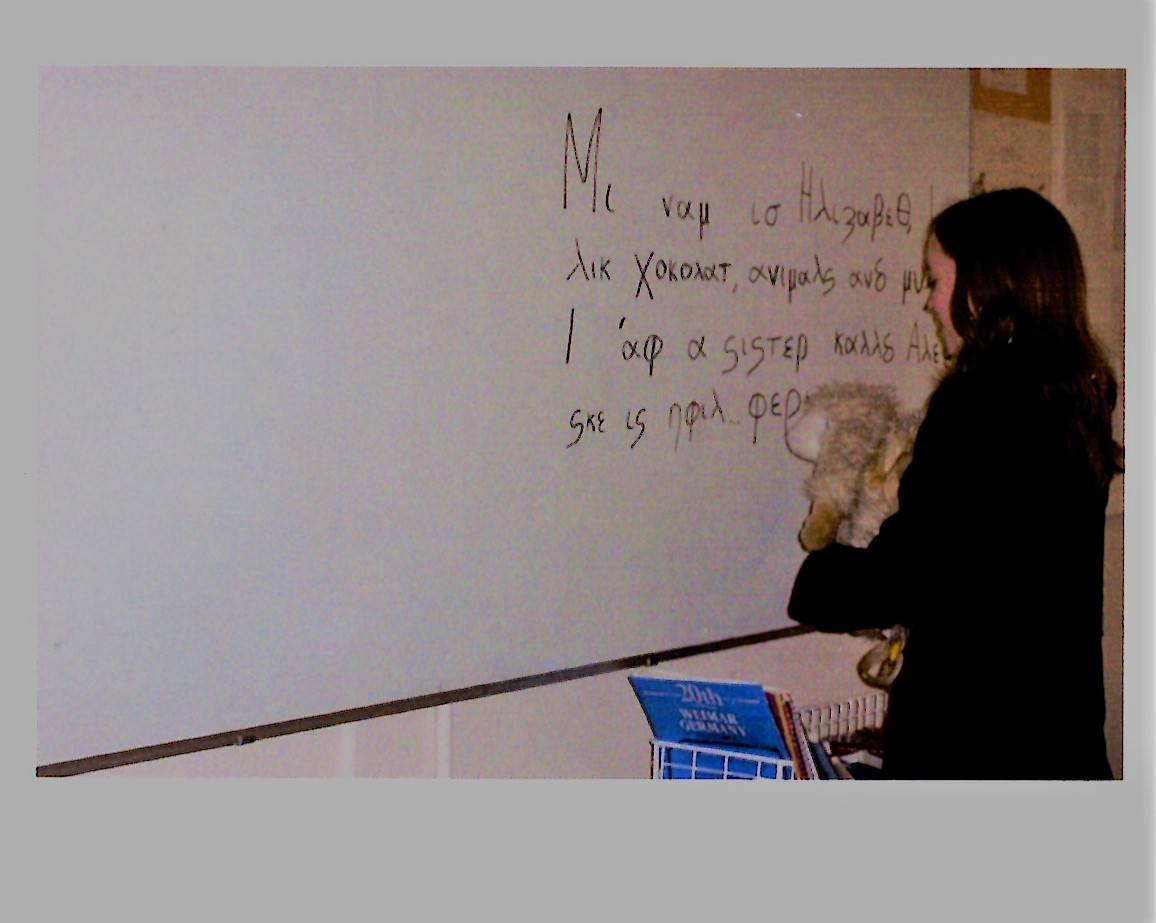 Μι ναμ ισ Ηλιζαβεθ,
λικ Χοκολατ, ανιμαλς ανδ
Ι άφ α ςιςτερ καλλς
ςκε ις ηφιλ..
20th
WEIMAR
GERMANY